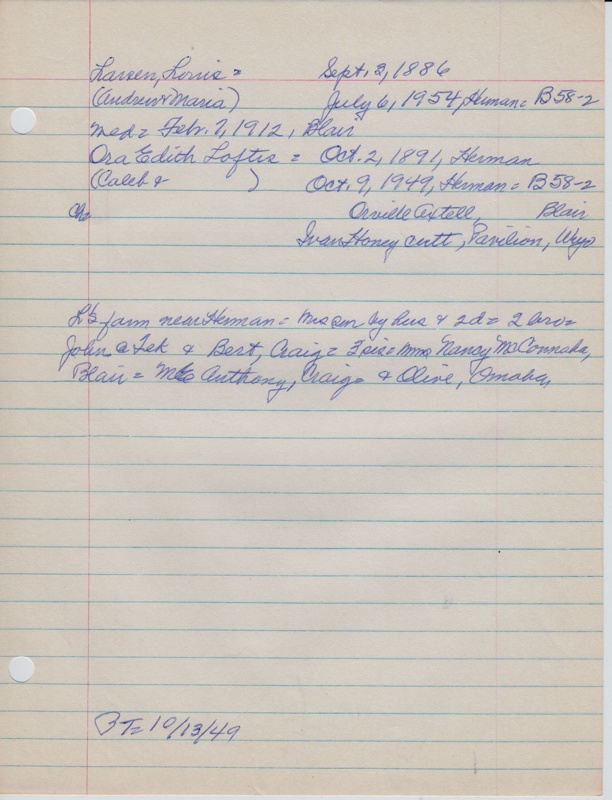 Larsen, Louis = Sept. 2, 1886
(Andrew & Maria) July 6, 1954, Herman = B58-2
med = Febr. 7, 1912, Blair
Ora Edith Loftis = Oct. 2, 1891, Herman
(Caleb & ) Oct. 9, 1949, Herman = B58-2
Ch= Orville Axtell, Blair
Ivan Honeycutt, Pavilion, Wyo
L's farm near Herman = Mrs sur by hus & 2d = 2 bro =
John @ Tek & Bert, Craig = 3 sis = Mmes Nancy McConnaha,
Blair = Anthony, Craig & Olive, Omaha,
BT= 10/13/49